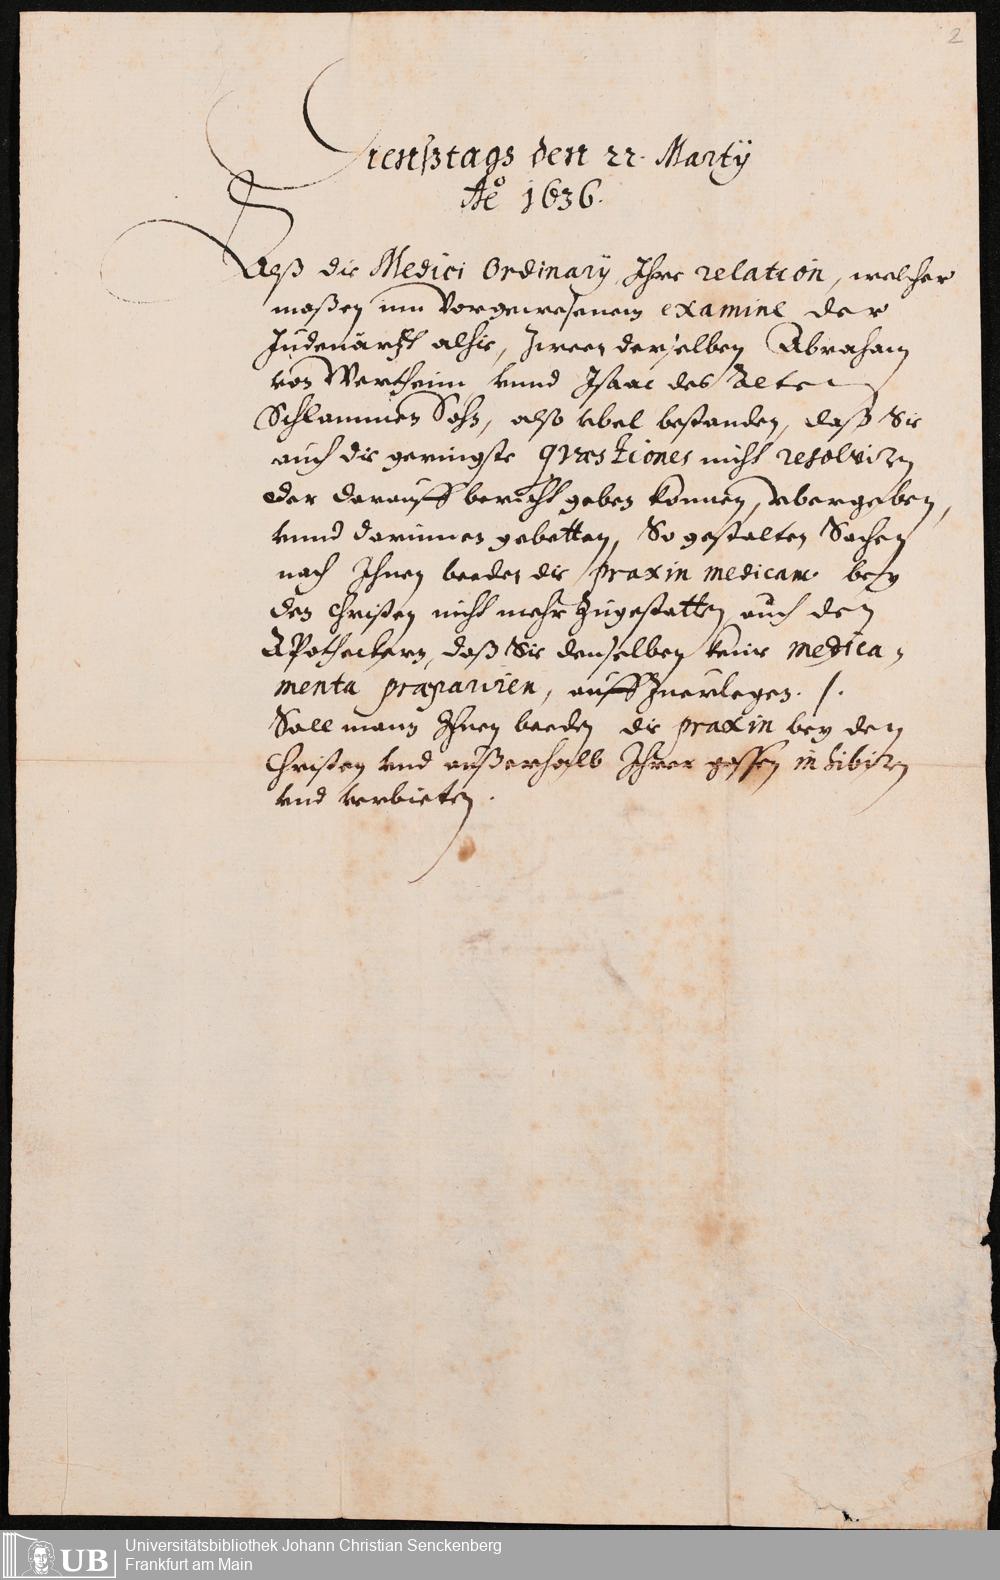 2
Dienstags den 22. Martÿ
Ao 1636.
Alß die Medici Ordinarÿ Ihre relation, welcher
maßen inn Vorgewesenem examine der
Judenärtzt alhie, Zween derselben Abraham
von Wertheim vnnd Isaac des
Schlammen Sohn, also vbel bestanden, daß Sie
auch die geringste quæstiones nicht resolviren
oder darauff bericht geben können, vbergeben,
vnnd darinnen gebetten, So gestalten Sachen
nach Ihnen beeden die praxin medicam bey
den Christen nicht mehr Zugestatten auch den
Apotheckern, daß Sie denselben keine medica,
menta præpariren, auffZuerlegen. /.
Soll mann Ihnen beeden die praxin bey den
Christen vnd außerhalb Ihrer gassen inhibiren
vnd verbieten.
UB
Universitätsbibliothek Johann Christian Senckenberg
Frankfurt am Main